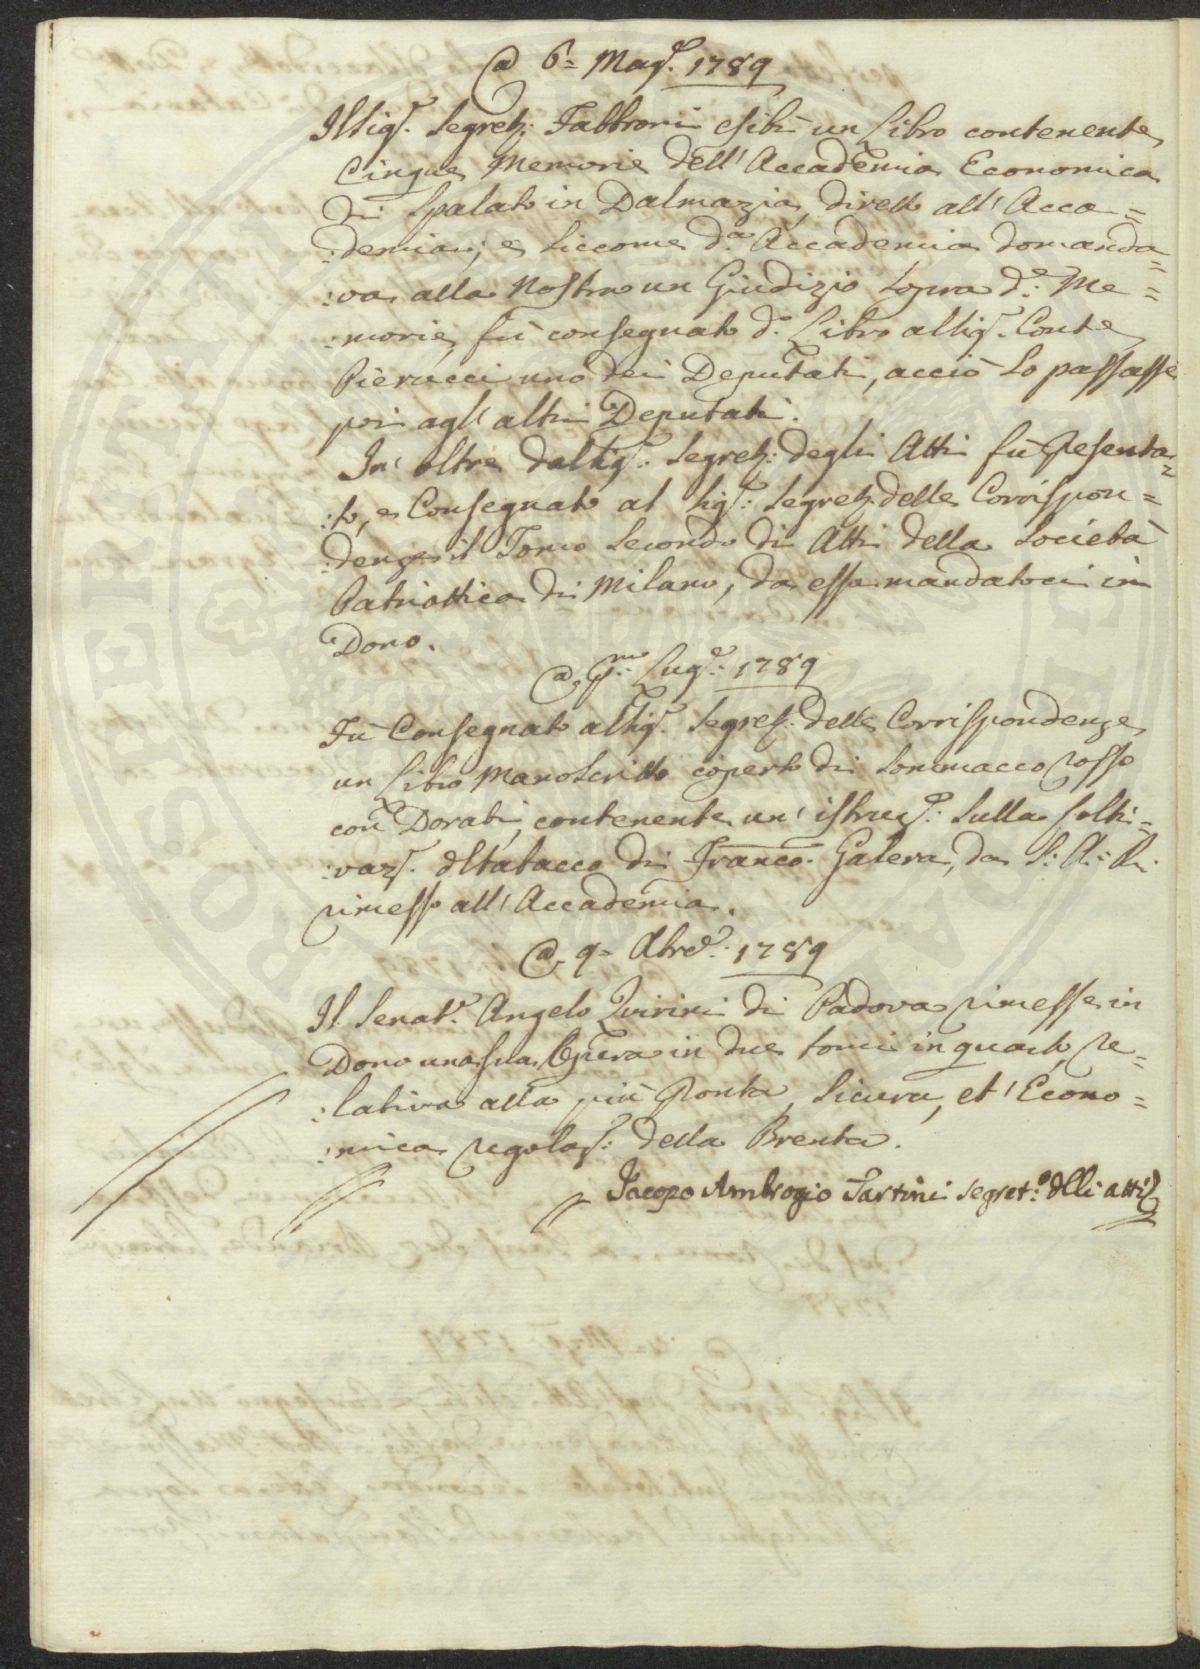 @ 6= Magg.º 1789
Il Sig.r Segret.: Fabbroni esibì un Libro contenente
Cinque Memorie dell' Accademia Economica
di Spalato in Dalmazia, diretto all' Acca=
:demia; e siccome d.ª Accademia domanda=
:va alla Nostra un Giudizio sopra d.e: Me=
:morie, fù consegnato d.º Libro al Sig.r Conte
Pierucci uno dei Deputati, acciò lo passasse
poi agl' altri Deputati.
In' oltre dal Sig.r: Segret.: degli Atti fù Presenta=
:to, e Consegnato al Sig.r: Segret. delle Corrispon=
:denze il Tomo Secondo di Atti della Società
Patriottica di Milano, da essa mandatoci in
Dono.
@ P.mo: Lug.º: 1789
Fù Consegnato al Sig.r Segret. delle Corrispondenze
un Libro Manoscritto coperto di Sommacco rosso
con Dorati, contenente un' istruz.e: sulla Colti=
:vaz.e del tabacco di Franc.co Galera, da S: A: R:
rimesso all' Accademia.
@ 9= Xbre: 1789
Il Senat.r Angelo Quirini di Padova rimesse in
Dono una sua Opera in due tomi in quarto, re=
:lativa alla più Pronta, Sicura, et' Econo=
:mica regolaz.e: della Brenta.
Jacopo Ambrogio Tartini Segret.º delli atti